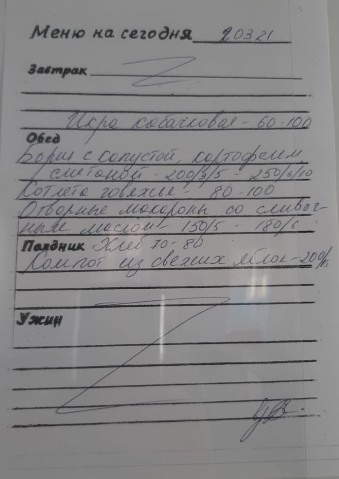 Меню на сегодня 2.03.21
Завтрак
Икра кабачковая - 60-100
Обед
Борщ с капустой, картофелем
сметаной - 200/3/5 - 250/3/10
Котлета говяжья - 80-100
Отворные макароны со сливоч-
ным маслом - 150/5 - 180/5
Полдник Хлеб 70-80
Компот из свежих яблок - 200
Ужин